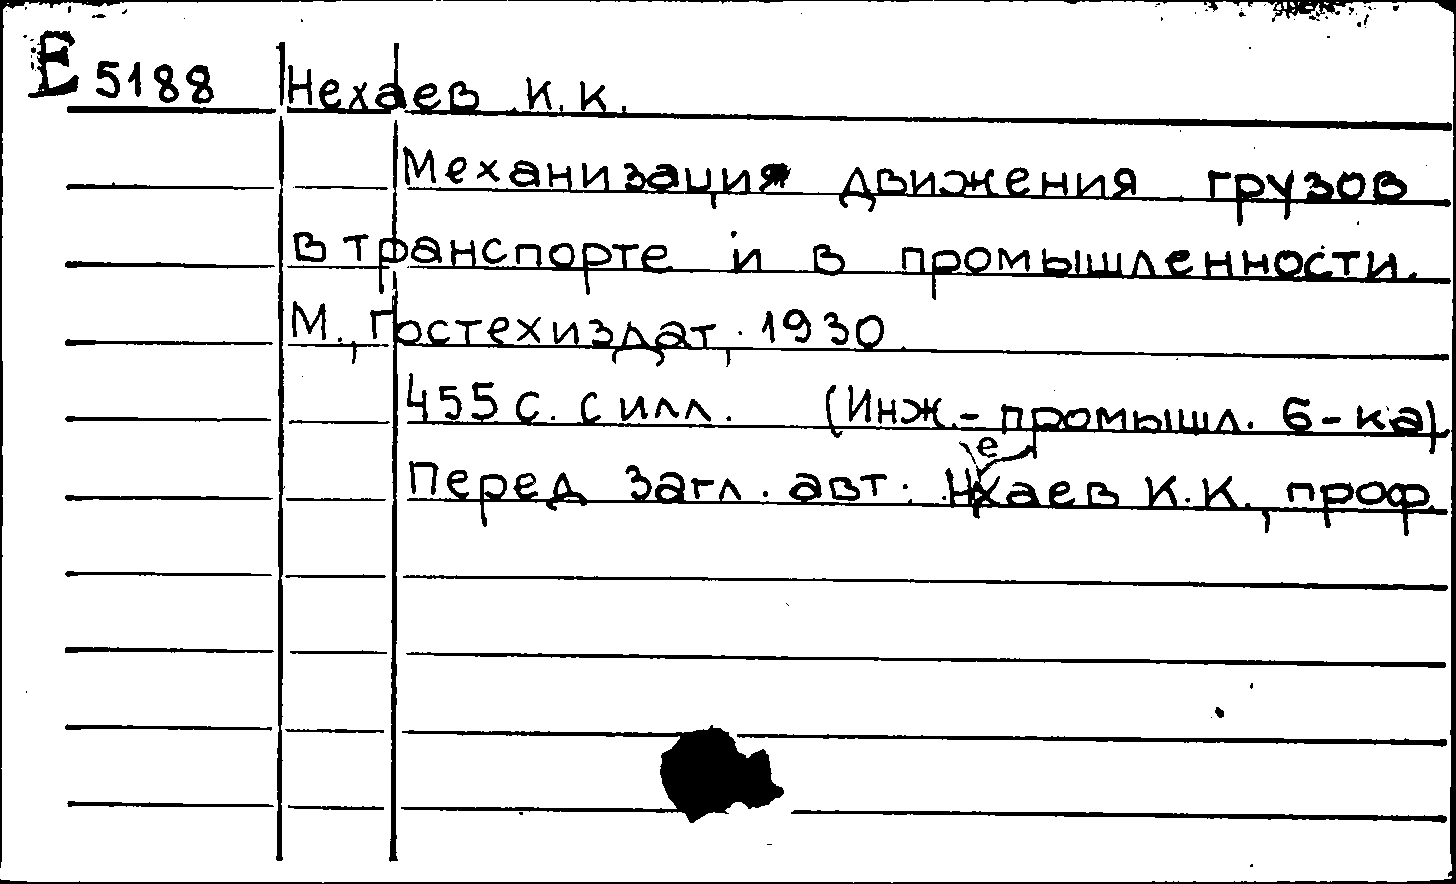 Е 5188 Нехаев К.К.
Механизация движения грузов
в транспорте и в промышленности.
М., Гостехиздат, 1930.
455 с. с илл. (Инж.-промышл. б-ка)
Перед загл. авт.: Нехаев К.К., проф.